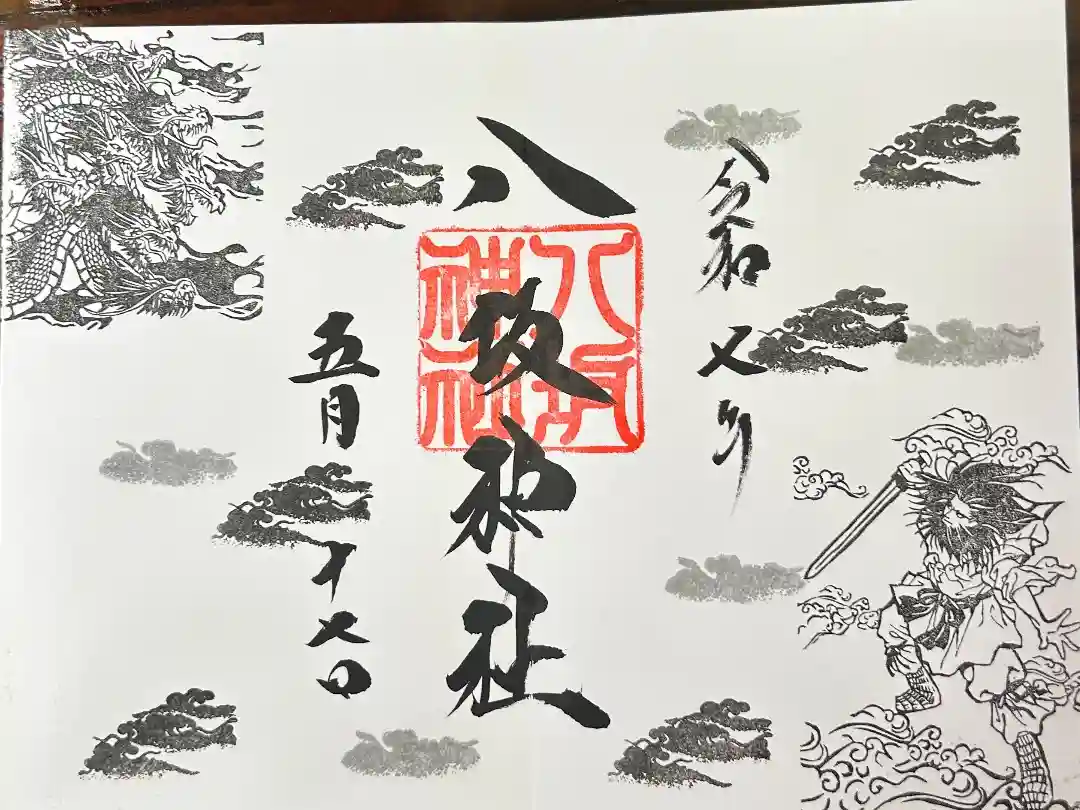 令和
年
八坂神社
八坂
神社
五月十七日